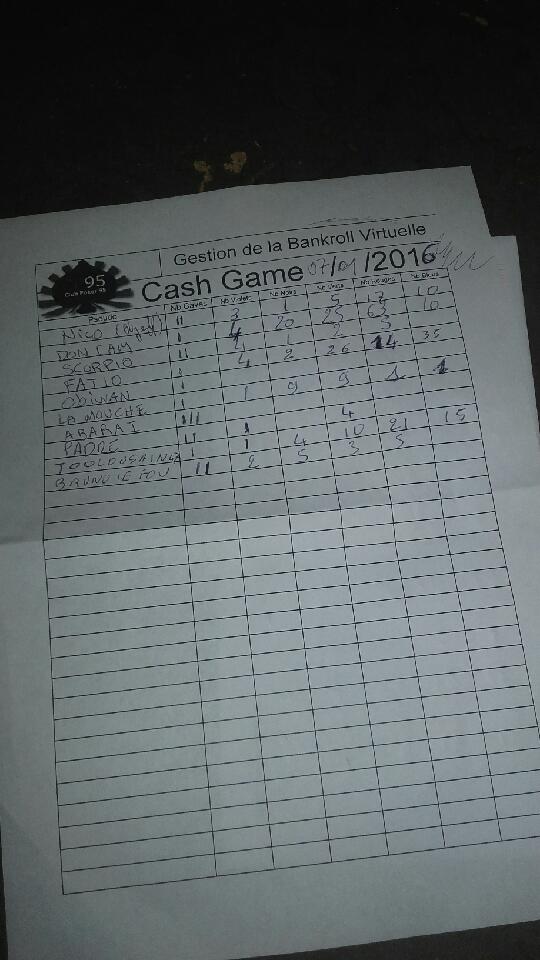 Gestion de la Bankroll Virtuelle
95
Club Poker 95
Cash Game 07/01/2016
Pseudo Nb Caves Nb Violets Nb Noirs Nb Verts Nb Rouges Nb Bleus
NICO II 3 5 10
DON CAM I 4 20 25 63 10
SCORPIO I 1 2 3
FATIO II 4 2 26 14 35
OBIWAN I
LA MOUCHE I 1 9 9 1 1
ABARAI III
PADRE II 1 4
TOOLOUSAING I 1 4 10 21 15
BRUNO LE FOU II 2 5 3 5